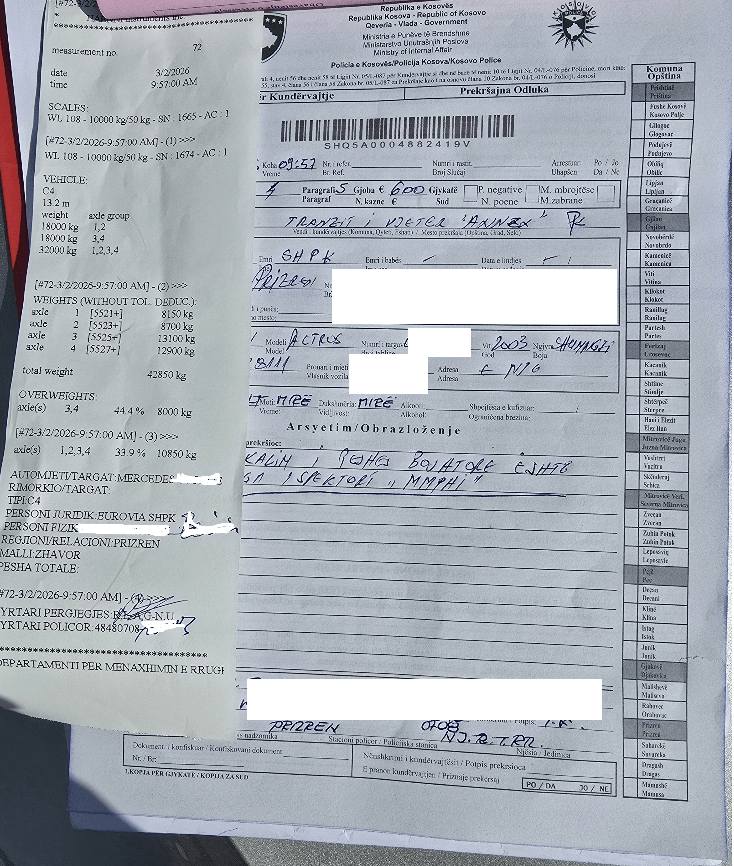 [#72-3/2/2026
*
measurement no. 72
date 3/2/2026
time 9:57:00 AM
SCALES:
WL 108 - 10000 kg/50 kg - SN : 1665 - AC : 1
[#72-3/2/2026-9:57:00 AM] - (1) >>>
WL 108 - 10000 kg/50 kg - SN : 1674 - AC : 1
VEHICLE:
C4
13.2 m
weight axle group
18000 kg 1,2
18000 kg 3,4
32000 kg 1,2,3,4
[#72-3/2/2026-9:57:00 AM] - (2) >>>
WEIGHTS (WITHOUT TOL. DEDUC.):
axle 1 [5521+] 8150 kg
axle 2 [5523+] 8700 kg
axle 3 [5525+] 13100 kg
axle 4 [5527+] 12900 kg
total weight 42850 kg
OVERWEIGHTS:
axle(s) 3,4 44.4 % 8000 kg
[#72-3/2/2026-9:57:00 AM] - (3) >>>
axle(s) 1,2,3,4 33.9 % 10850 kg
AUTOMJETI/TARGAT:MERCEDES
RIMORKIO/TARGAT:
TIPI:C4
PERSONI JURIDIK:EUROVIA SHPK
PERSONI FIZIK
REGJIONI/RELACIONI:PRIZREN
MALLI:ZHAVOR
PESHA TOTALE:
#72-3/2/2026-9:57:00 AM] - (4) >>>
YRTARI PERGJEGJES:
YRTARI POLICOR:48480708
DEPARTAMENTI PER MENAXHIMIN E RRUGE
Republika e Kosovës
Republika Kosova - Republic of Kosovo
Qeveria - Vlada - Government
Ministria e Punëve të Brendshme
Ministarstvo Unutrašnjih Poslova
Ministry of Internal Affair
Policia e Kosovës/Policija Kosova/Kosovo Police
ër Kundërvajtje Prekršajna Odluka
SHQ5A0004882419V
Koha 09:57 Nr. / ref. Numri i rastit Arrestuar Po / Jo
Vreme Br. Ref. Broj Slučaj Uhapšen Da / Ne
Paragrafi 5 Gjoba € 600 Gjykatë P. negative M. mbrojtëse
Paragraf N. kazne € Sud N. poene M. zabrane
TRANZIT I VJETER "ANNEX"
Vendi i kundërvajtjes (Komuna, Qyteti, Fshati) / Mesto prekršaja (Opština, Grad, Selo)
Emri SHPK Emri i babës Data e lindjes
PRIZREN
Modeli ACTROS Numri i targave Viti 2003 Ngjyra
Model God Boja
Vlasnik vozila Adresa
Adresa
Moti: MIRË Dukshmëria: MIRË Alkool: Shpejtësia e kufizuar:
Vreme: Vidljivost: Alkohol: Ograničena brzina:
Arsyetim/Obrazloženje
prekršioc:
KALIM I PESHES BOSHTORE ËSHTË
GA INSPEKTORI "MMPHI"
PRIZREN 0708
Stacioni policor / Policijska stanica Njësia / Jedinica
Dokument. i konfiskuar / Konfiskovani dokument
Nr. / Br:
Nënshkrimi i kundërvajtësit / Potpis prekrsioca
E pranon kundërvajtjen / Priznaje prekersaj PO / DA JO / NE
1.KOPJA PËR GJYKATË / KOPIJA ZA SUD
Komuna
Opština
Prishtinë
Priština
Fushe Kosovë
Kosovo Polje
Gllogoc
Glogovac
Podujevë
Podujevo
Obiliq
Obilic
Lipjan
Lipljan
Graçanicë
Gracanica
Gjilan
Gnjilane
Novobërdë
Novobrdo
Kamenicë
Kamenica
Viti
Vitina
Kllokot
Klokot
Ranillug
Ranilug
Partesh
Partes
Ferizaj
Urosevac
Kacanik
Kacanik
Shtime
Stimlje
Shtërpcë
Sterpce
Hani i Elezit
Elez Han
Mitrovicë Jugore
Juzna Mitrovica
Vushtrri
Vucitrn
Skënderaj
Srbica
Mitrovicë Veri.
Severna Mitrovica
Zveçan
Zvecan
Zubin Potok
Zubin Potok
Leposaviq
Leposavic
Pejë
Pec
Deçan
Decani
Klinë
Klina
Istog
Istok
Junik
Junik
Gjakovë
Djakovica
Malishevë
Malisevo
Rahovec
Orahovac
Prizren
Prizren
Suharekë
Suvareka
Dragash
Dragas
Mamushë
Mamusa